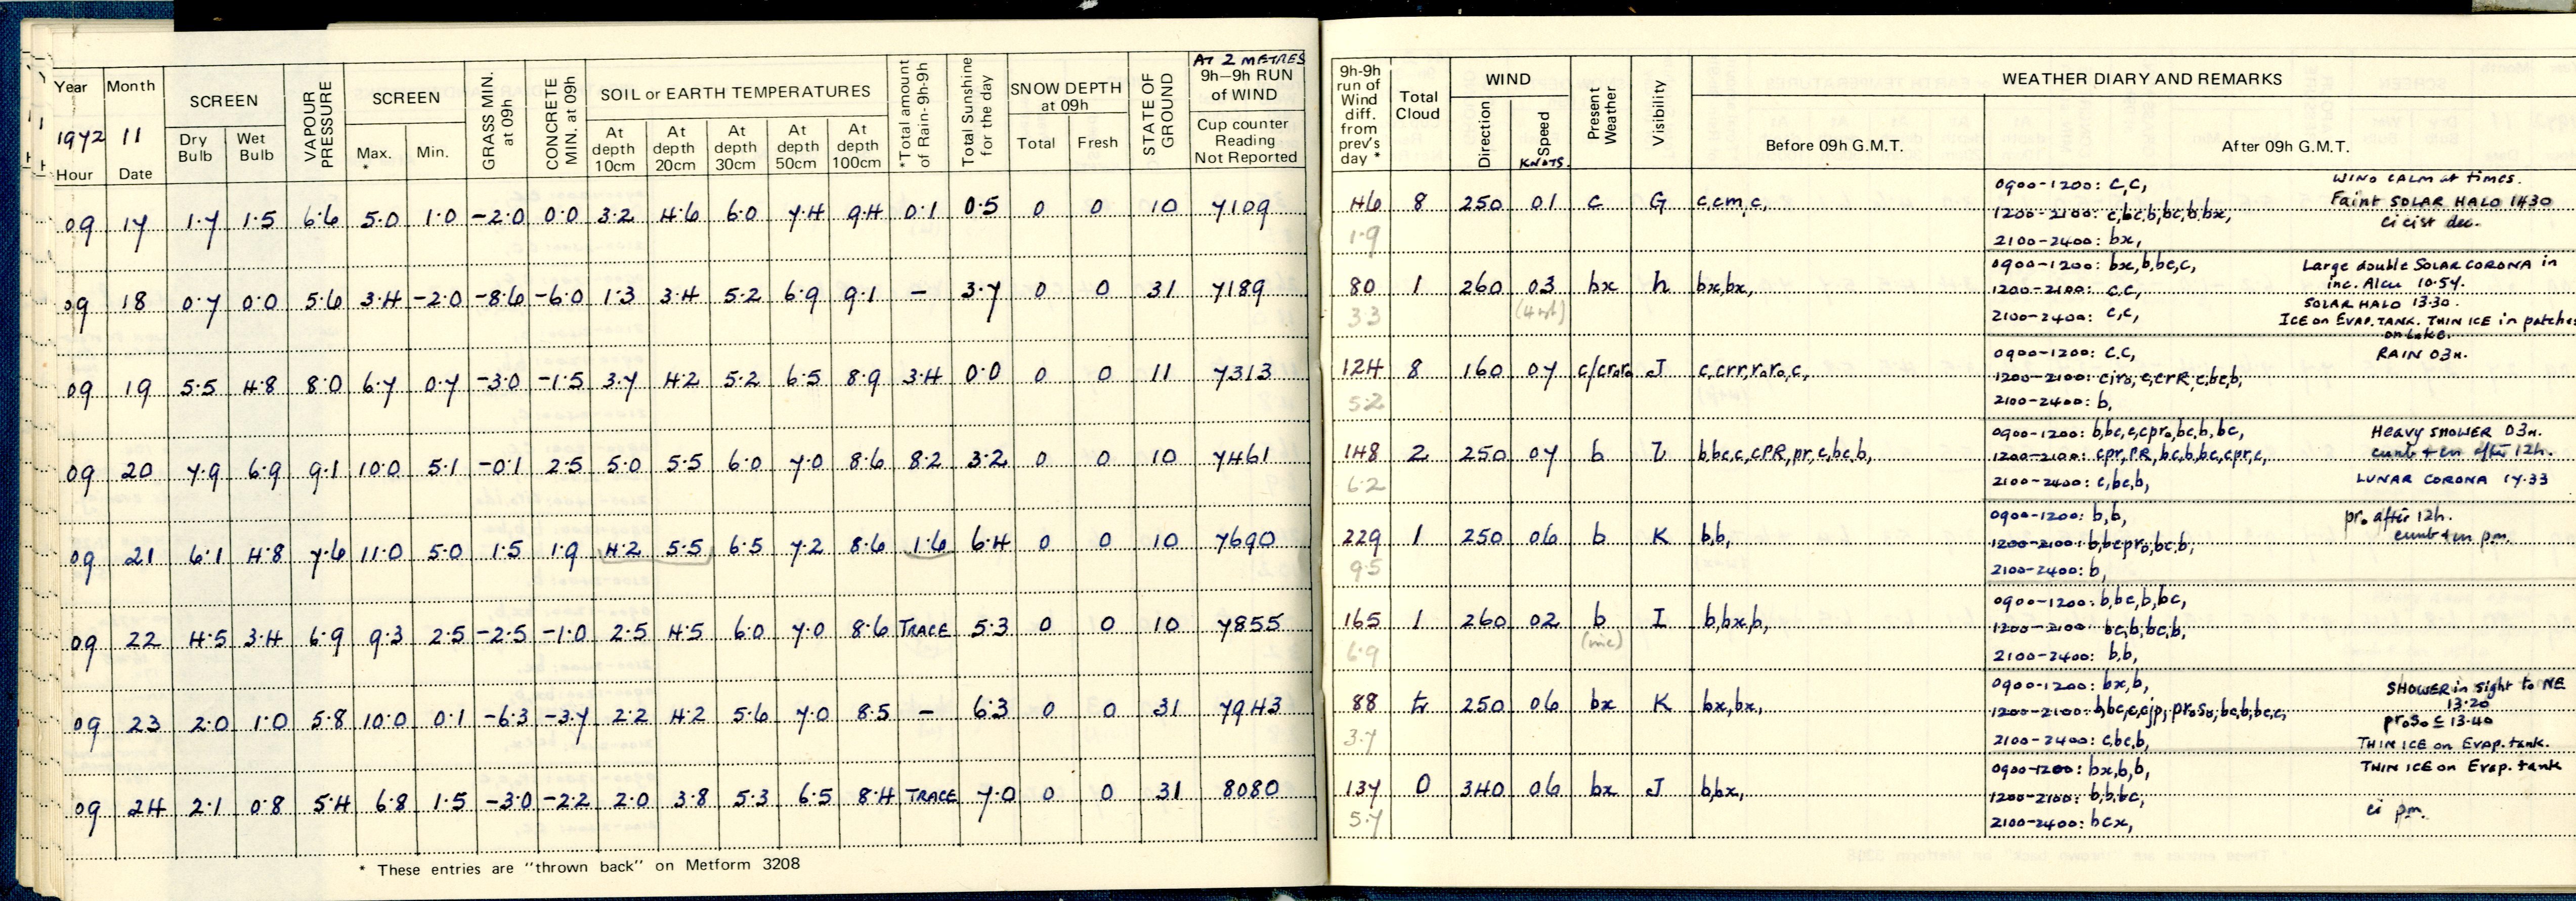 Year Month SCREEN VAPOUR PRESSURE SCREEN GRASS MIN. at 09h CONCRETE MIN. at 09h SOIL or EARTH TEMPERATURES *Total amount of Rain-9h-9h Total Sunshine for the day SNOW DEPTH at 09h STATE OF GROUND AT 2 METRES 9h–9h RUN of WIND
1972 11 Dry Bulb Wet Bulb Max. * Min. At depth 10cm At depth 20cm At depth 30cm At depth 50cm At depth 100cm Total Fresh Cup counter Reading Not Reported
Hour Date
09 17 1.7 1.5 6.6 5.0 1.0 -2.0 0.0 3.2 4.6 6.0 7.4 9.4 0.1 0.5 0 0 10 7109
09 18 0.7 0.0 5.6 3.4 -2.0 -8.6 -6.0 1.3 3.4 5.2 6.9 9.1 - 3.7 0 0 31 7189
09 19 5.5 4.8 8.0 6.7 0.7 -3.0 -1.5 3.7 4.2 5.2 6.5 8.9 3.4 0.0 0 0 11 7313
09 20 7.9 6.9 9.1 10.0 5.1 -0.1 2.5 5.0 5.5 6.0 7.0 8.6 8.2 3.2 0 0 10 7461
09 21 6.1 4.8 7.6 11.0 5.0 1.5 1.9 4.2 5.5 6.5 7.2 8.6 1.6 6.4 0 0 10 7690
09 22 4.5 3.4 6.9 9.3 2.5 -2.5 -1.0 2.5 4.5 6.0 7.0 8.6 TRACE 5.3 0 0 10 7855
09 23 2.0 1.0 5.8 10.0 0.1 -6.3 -3.7 2.2 4.2 5.6 7.0 8.5 - 6.3 0 0 31 7943
09 24 2.1 0.8 5.4 6.8 1.5 -3.0 -2.2 2.0 3.8 5.3 6.5 8.4 TRACE 7.0 0 0 31 8080
* These entries are "thrown back" on Metform 3208
9h-9h run of Wind diff. from prev's day * Total Cloud WIND Present Weather Visibility WEATHER DIARY AND REMARKS
Direction Speed KNOTS. Before 09h G.M.T. After 09h G.M.T.
46 8 250 01 c G c,cm,c, 0900-1200: c,c, WIND CALM at times.
1.9 1200-2100: c,bc,b,bc,b,bx, Faint SOLAR HALO 1430
2100-2400: bx, ci cist dec.
80 1 260 03 bx h bx,bx, 0900-1200: bx,b,bc,c, Large double SOLAR CORONA in
1200-2100: c,c, inc. Alcu 10.54.
3.3 2100-2400: c,c, SOLAR HALO 13.30.
ICE on EVAP. TANK. THIN ICE in patches
on Lake.
124 8 160 07 J 0900-1200: c.c, RAIN 03H.
5.2 1200-2100:
2100-2400: b,
148 2 250 07 b b,bc,c,cPR,pr,c,bc,b, 0900-1200: b,bc,c,cpro,bc,b,bc, Heavy SHOWER 03H.
1200-2100: cpr,PR,bc,b,bc,cpr,c, cunb + cn after 12h.
6.2 2100-2400: c,bc,b, LUNAR CORONA 17.33
229 1 250 06 b K b,b, 0900-1200: b,b, pro after 12h.
1200-2100: b,bcpro,bc,b, p.m.
9.5 2100-2400: b,
165 1 260 02 b I b,bx,b, 0900-1200: b,bc,b,bc,
1200-2100: bc,b,bc,b,
6.9 2100-2400: b,b,
88 tr 250 06 bx K bx,bx, 0900-1200: bx,b, SHOWER in sight to NE
13.20
1200-2100: 13.40
3.7 2100-2400: c,bc,b, THIN ICE on Evap. tank.
137 0 340 06 bx J b,bx, 0900-1200: bx,b,b, THIN ICE on Evap. tank
1200-2100: b,b,bc,
5.7 2100-2400: bcx, ci p.m.